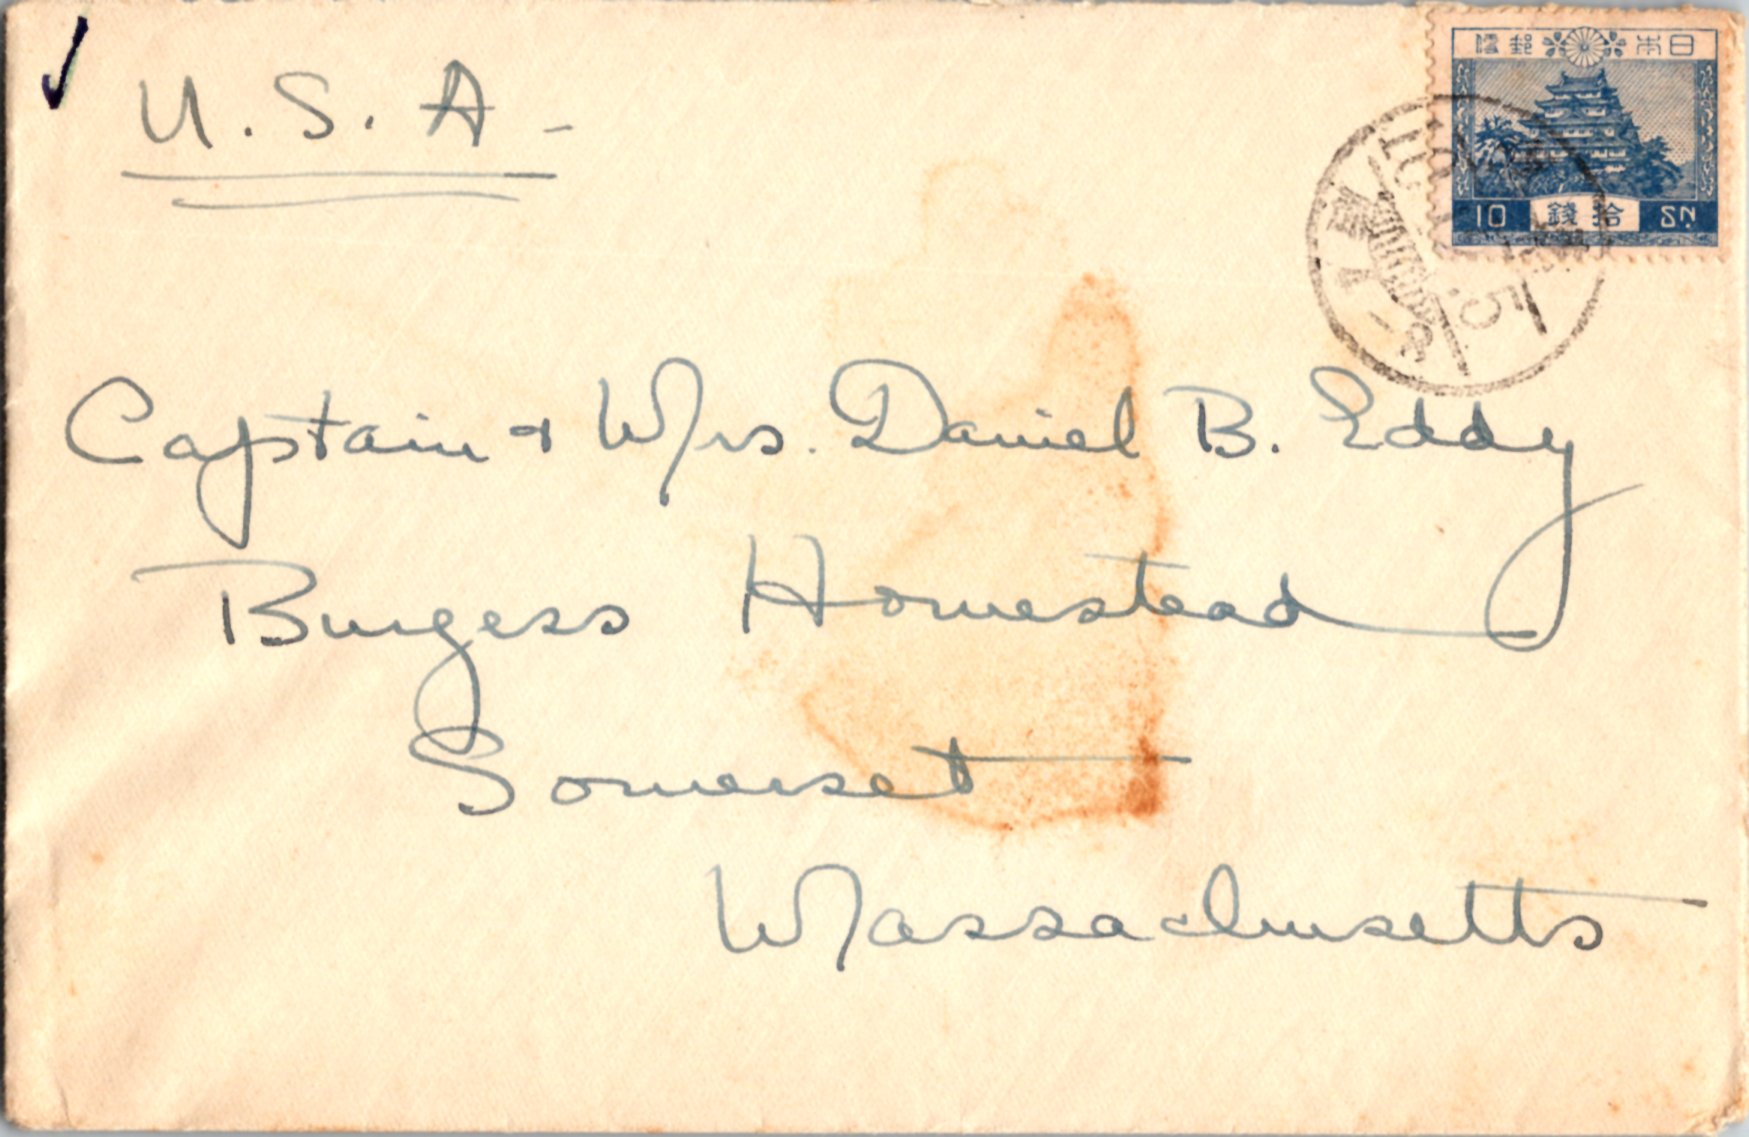 U.S.A-
日本郵便
10 拾錢 SN.
Captain + Mrs. Daniel B. Eddy
Burgess Homestead
Somerset
Massachusetts